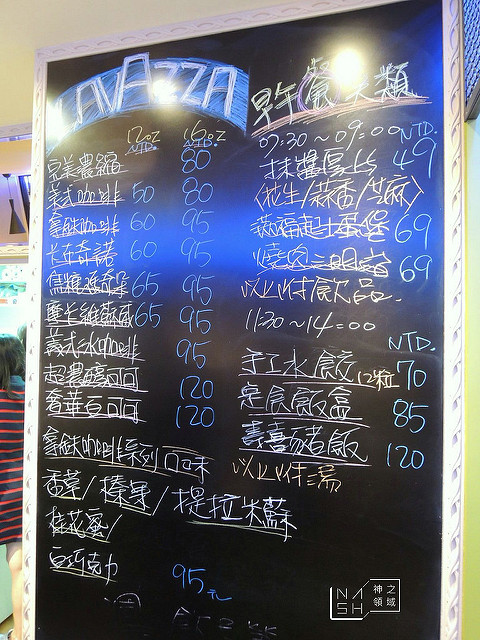 LAVAZZA
12oz 16oz
NTD. NTD.
完美濃縮 80
美式咖啡 50 80
拿鐵咖啡 60 95
卡布奇諾 60 95
焦糖瑪奇朵 65 95
摩卡維蘇威 65 95
義式冰咖啡 95
超濃醇可可 120
奢華百可可 120
拿鐵咖啡系列口味
香草/榛果/提拉米蘇
桂花蜜/
白巧克力
95元
早午餐類
07:30~09:00 NTD.
抹醬厚片 49
<花生/蒜香/芝麻>
滿福起士蛋堡 69
燒肉三明治 69
以上附飲品.
11:30~14:00
NTD.
手工水餃 12粒 70
定食飯盒 85
壽喜豬飯 120
以上附湯
NASH 神之領域